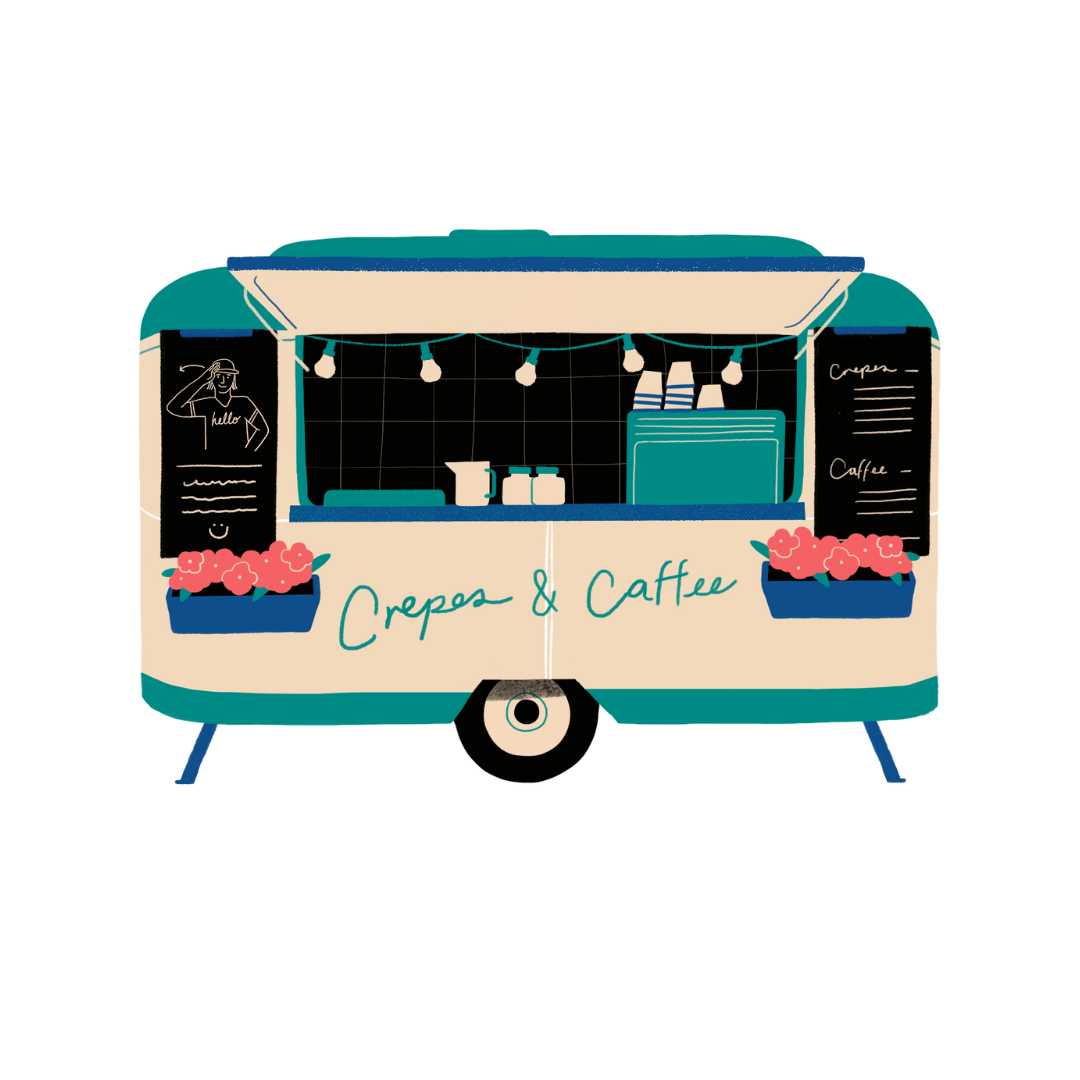 hello
Crepes
Caffee
Crepes & Caffee